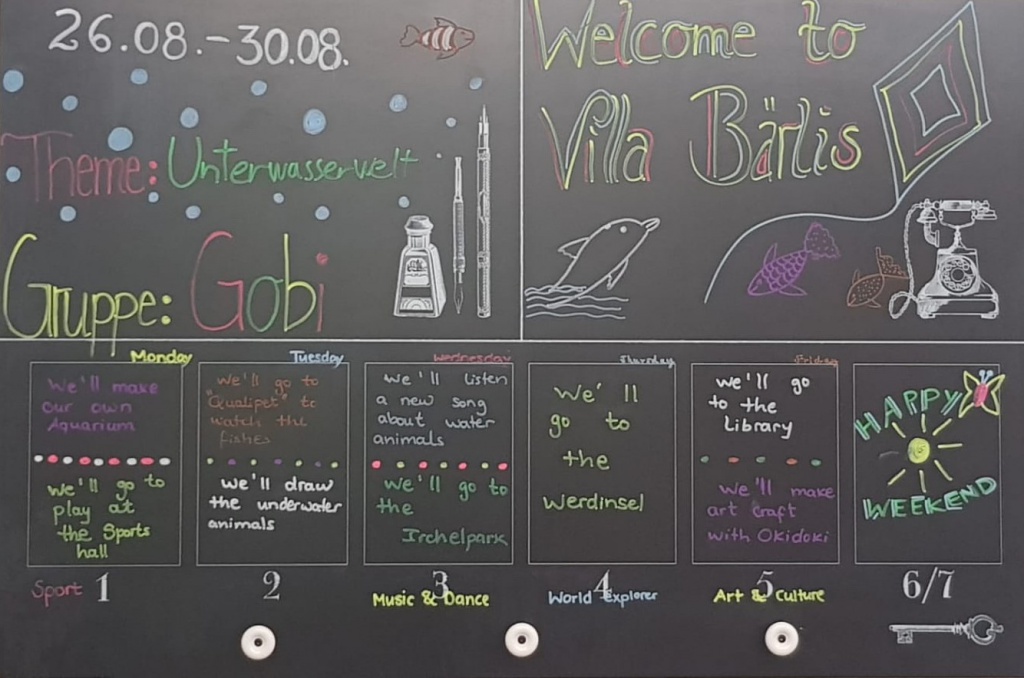 26.08.-30.08.
Theme: Unterwasserwelt
Gruppe: Gobi
Welcome to
Villa Bärlis
Monday
We'll make
our own
Aquarium
We'll go to
play at
the Sports
hall
Sport 1
Tuesday
We'll go to
"Qualipet" to
watch the
fishes
We'll draw
the underwater
animals
2
Wednesday
We'll listen
a new song
about water
animals
We'll go to
the
Irchelpark
3
Music & Dance
Thursday
We'll
go to
the
Werdinsel
4
World explorer
Friday
We'll go
to the
Library
We'll make
art craft
with Okidoki
5
Art & Culture
HAPPY
WEEKEND
6/7